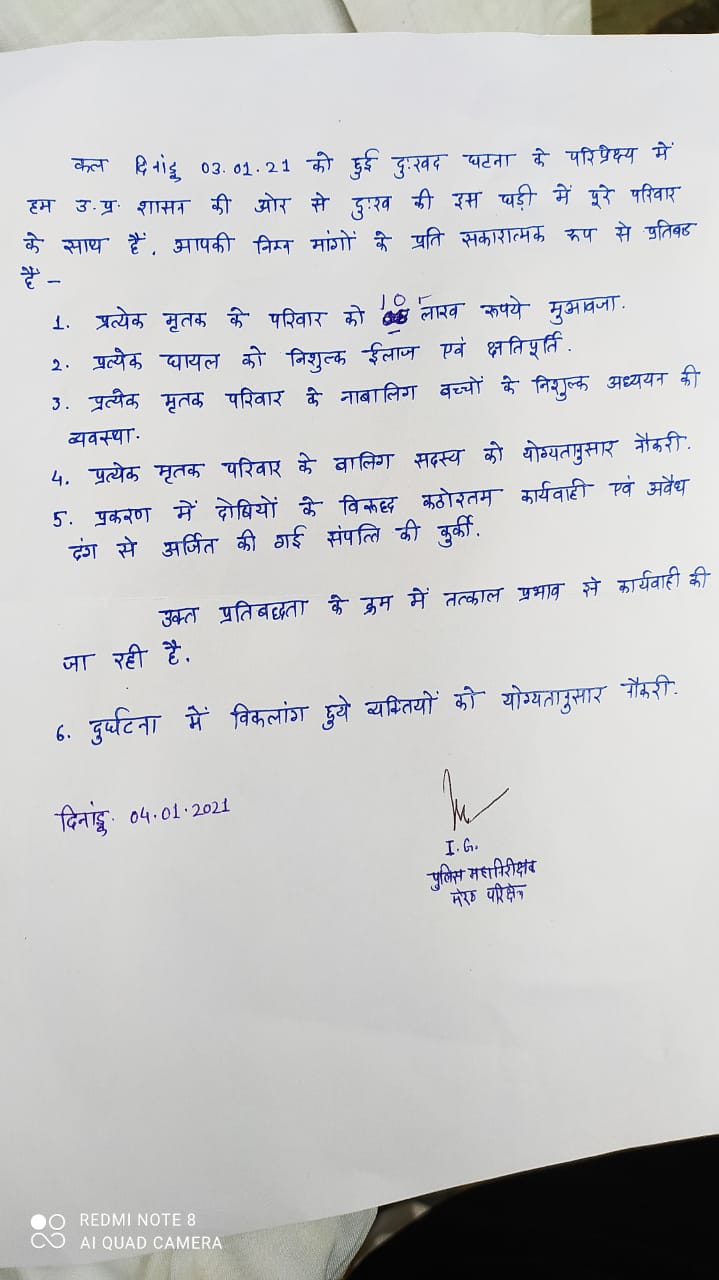 कल दिनांङ्क 03.01.21 को हुई दुःखद घटना के परिप्रेक्ष्य में
हम उ.प्र. शासन की ओर से दुःख की इस घड़ी में पूरे परिवार
के साथ हैं. आपकी निम्न मांगों के प्रति सकारात्मक रूप से प्रतिबद्ध
हैं -
1. प्रत्येक मृतक के परिवार को 10 लाख रूपये मुआवजा.
2. प्रत्येक घायल को निशुल्क ईलाज एवं क्षतिपूर्ति.
3. प्रत्येक मृतक परिवार के नाबालिग बच्चों के निशुल्क अध्ययन की
व्यवस्था.
4. प्रत्येक मृतक परिवार के बालिग सदस्य को योग्यतानुसार नौकरी.
5. प्रकरण में दोषियों के विरूद्ध कठोरतम कार्यवाही एवं अवैध
ढंग से अर्जित की गई संपत्ति की कुर्की.
उक्त प्रतिबद्धता के क्रम में तत्काल प्रभाव से कार्यवाही की
जा रही है.
6. दुर्घटना में विकलांग हुये व्यक्तियों को योग्यतानुसार नौकरी.
दिनांङ्क 04.01.2021
I.G.
पुलिस महानिरीक्षक
मेरठ परिक्षेत्र
REDMI NOTE 8
AI QUAD CAMERA